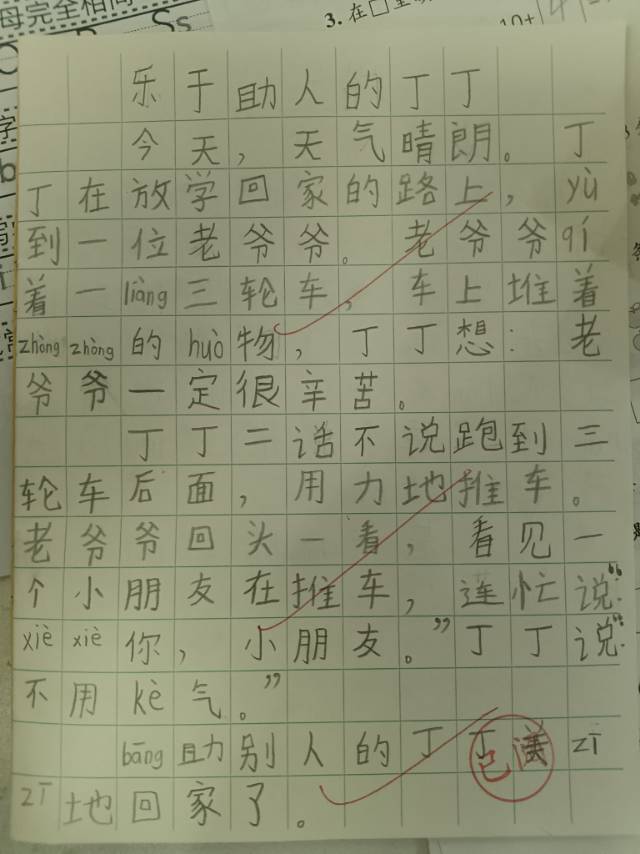 母完全相同
Ss
3.在□里
10+
乐于助人的丁丁
今天，天气晴朗。丁
丁在放学回家的路上，yù
到一位老爷爷。老爷爷qí
着一liàng三轮车，车上堆着
zhòng zhòng的huò物，丁丁想：老
爷爷一定很辛苦。
丁丁二话不说跑到三
轮车后面，用力地推车。
老爷爷回头一看，看见一
个小朋友在推车，连忙说：“
xiè xiè你，小朋友。”丁丁说：“
不用kè气。”
bāng助别人的丁丁美zī
zī地回家了。